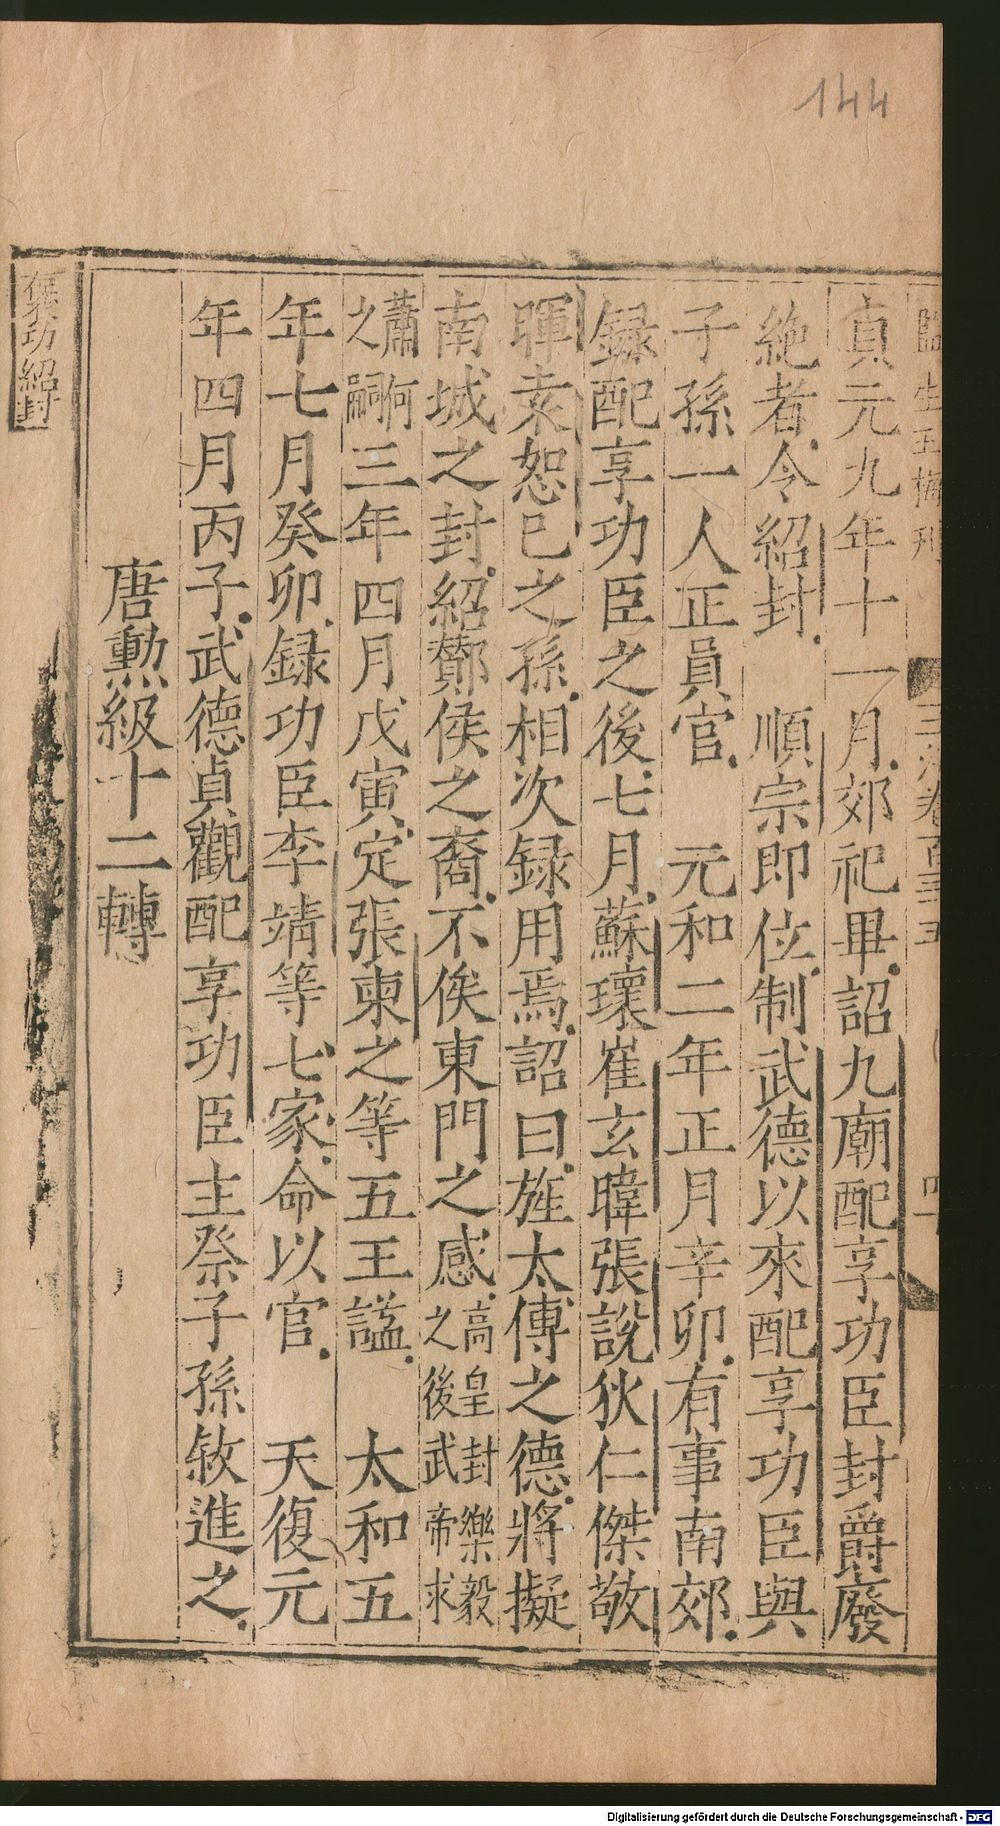 144
貞元九年十一月郊祀畢詔九廟配享功臣封爵廢
絶者令紹封　順宗即位制武德以來配享功臣與
子孫一人正員官　元和二年正月辛卯有事南郊
録配享功臣之後七月蘇瓌崔玄暐張說狄仁傑敬
暉袁恕已之孫相次録用焉詔曰旌太傅之德將擬
南城之封紹酇侯之裔不俟東門之感高皇封樂毅之後武帝求
蕭何之嗣三年四月戊寅定張柬之等五王謚　太和五
年七月癸卯録功臣李靖等七家命以官　天復元
年四月丙子武德貞觀配享功臣主祭子孫敘進之
唐勲級十二轉
襃功紹封
Digitalisierung gefördert durch die Deutsche Forschungsgemeinschaft - DFG